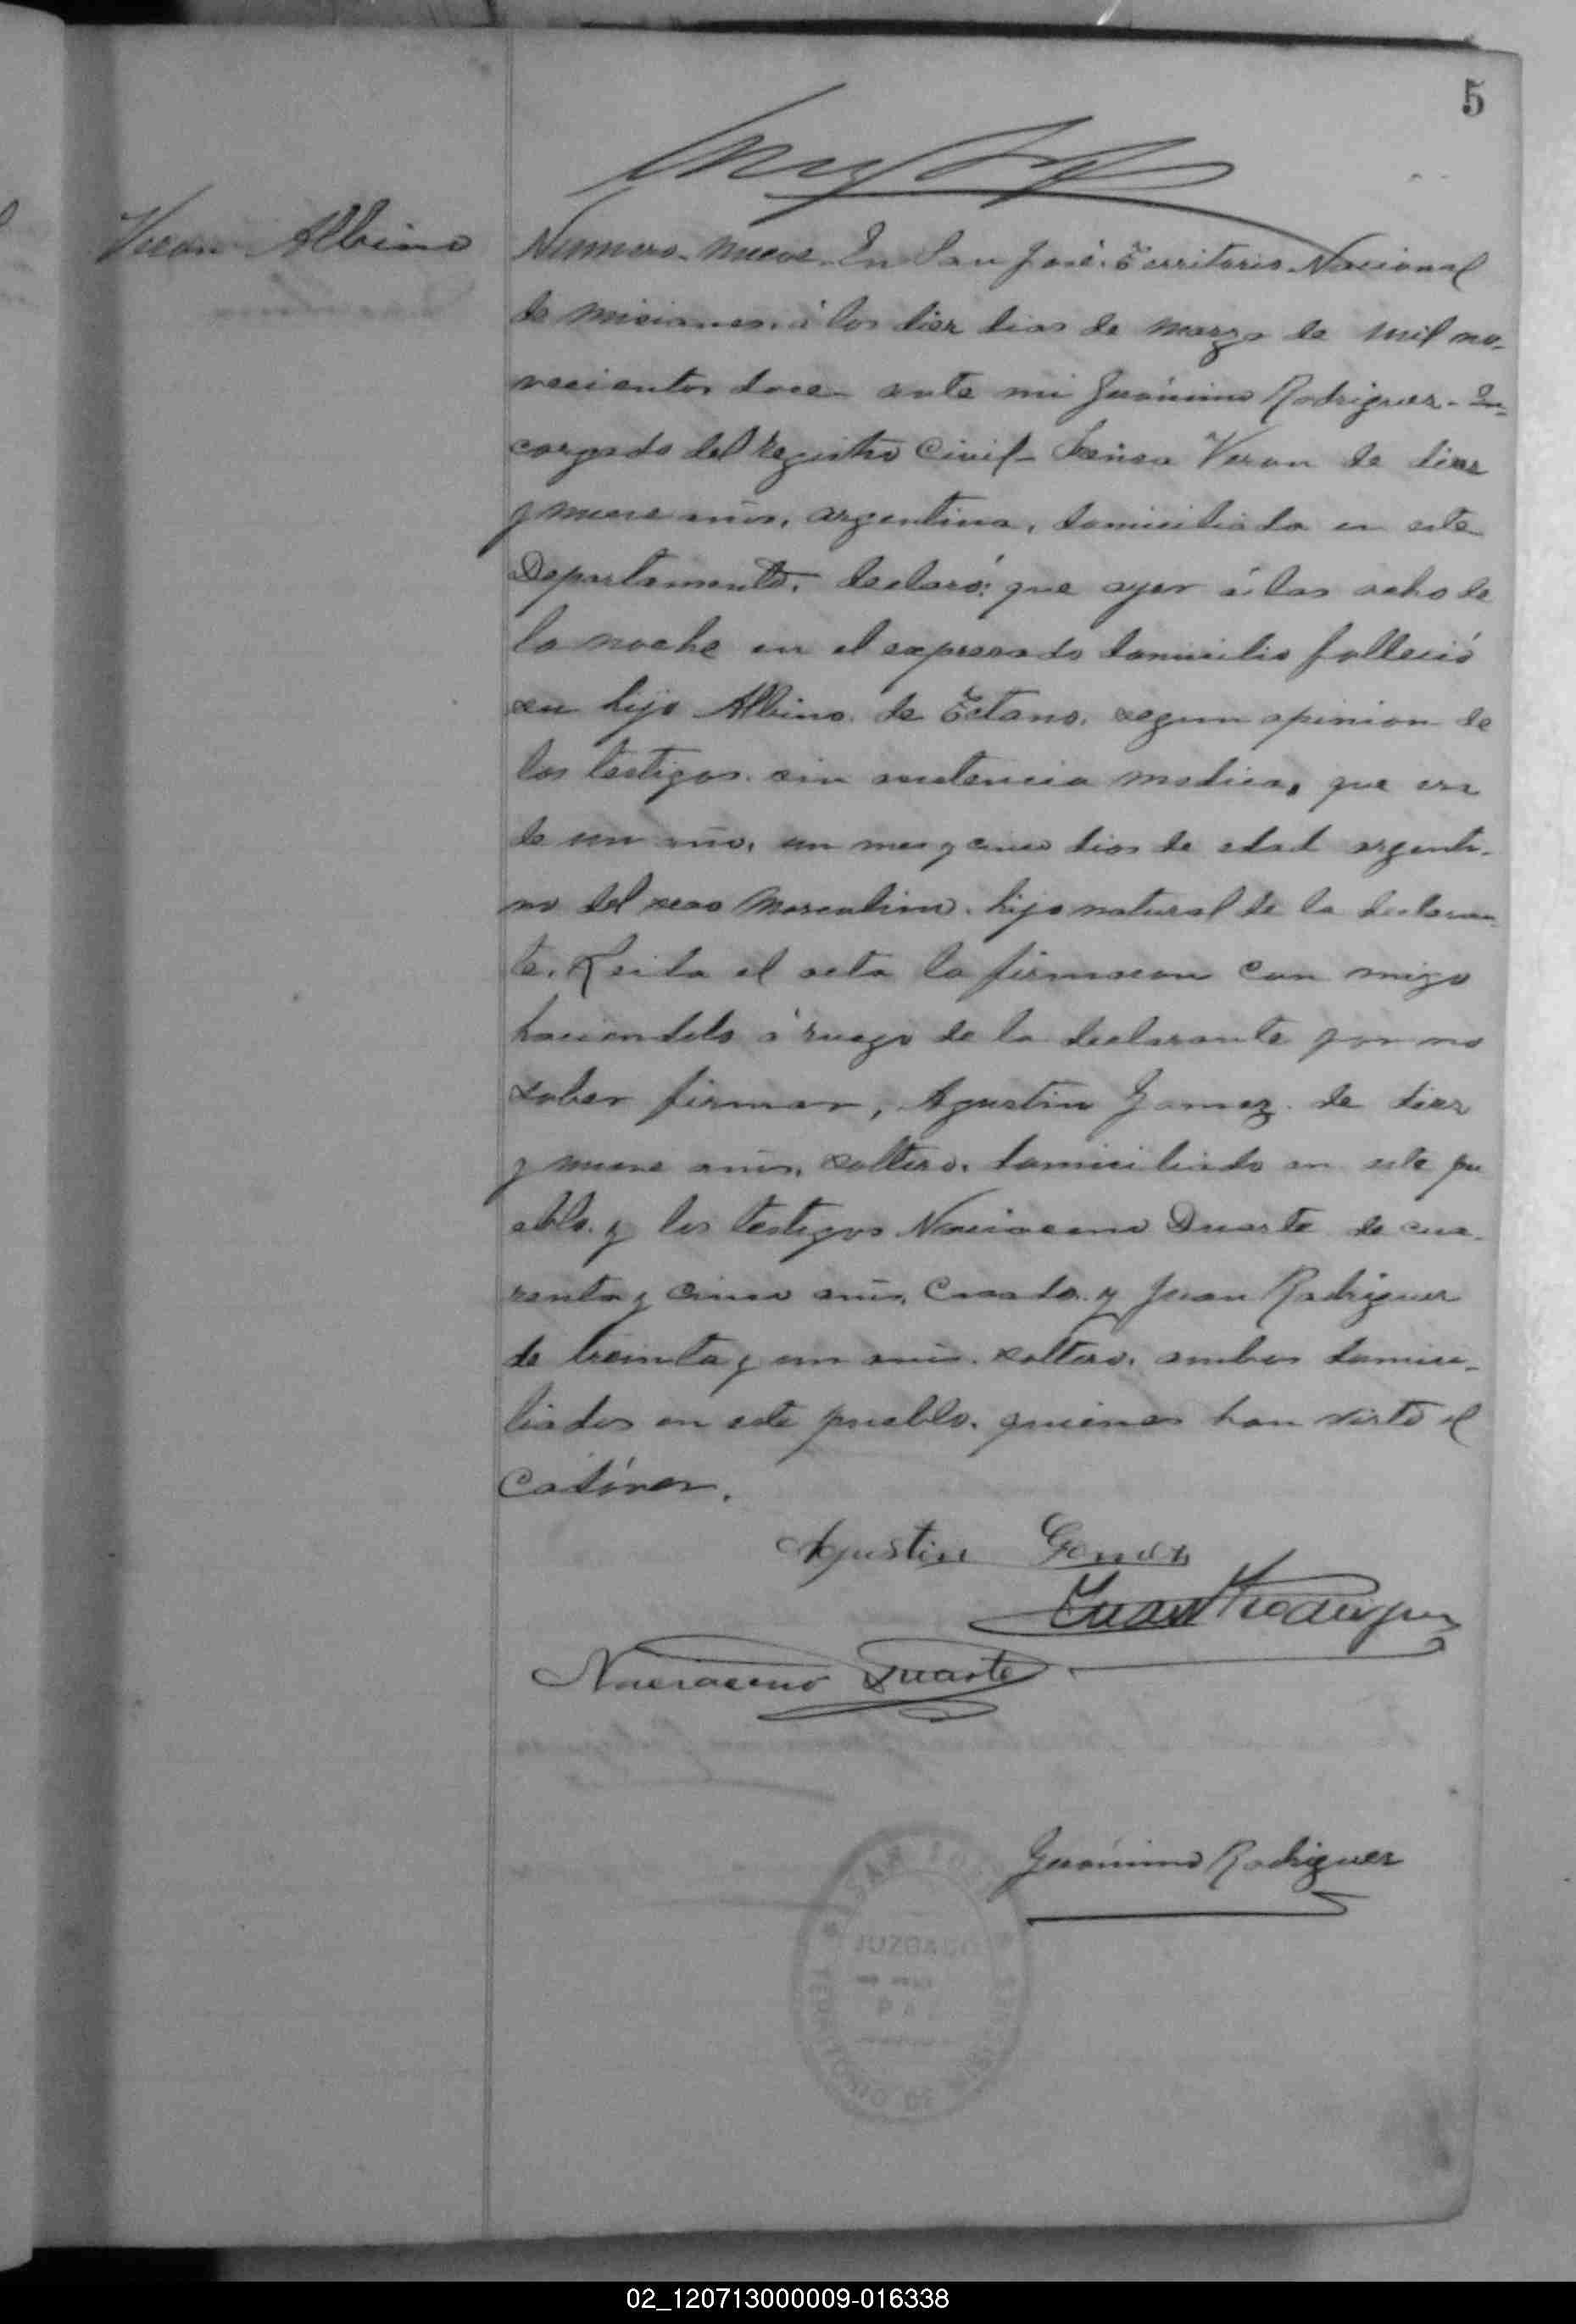 5
Veron Albino
Numero nueve. En San José. Territorio Nacional
de misiones. á los diez dias de marzo de mil no-
vecientos doce ante mi Gerónimo Rodriguez - En-
cargado del Registro Civil - Veron de diez
y nueve años, argentina, domiciliada en este
Departamento, declaró: que ayer á las ocho de
la noche en el expresado domicilio falleció
su hijo Albino de Tetano, segun opinion de
los testigos sin asistencia medica, que era
de un año, un mes y cinco dias de edad argenti-
no del sexo masculino. hijo natural de la declaran-
te. Leida el acta la firmaron con migo
haciendolo á ruego de la declarante por no
saber firmar, Agustin Gomez de diez
y nueve años, soltero, domiciliado en este pu
eblo. y los testigos Duarte de cua-
renta y cinco años, Casado. y Juan Rodriguez
de treinta y un años. soltero, ambos domici-
liados en este pueblo. quienes han visto el
Cadáver.
Agustin Gomez
Juan Rodriguez
Duarte
Gerónimo Rodriguez
SAN JOSE
JUZGADO
DE PAZ
TERRITORIO DE MISIONES
02_120713000009-016338